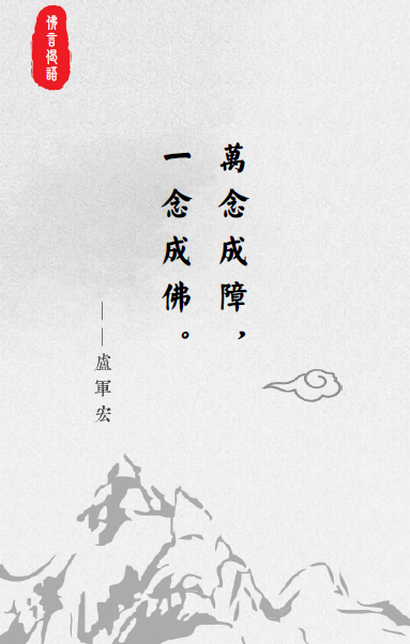 佛言偈語
萬念成障，
一念成佛。
——盧軍宏